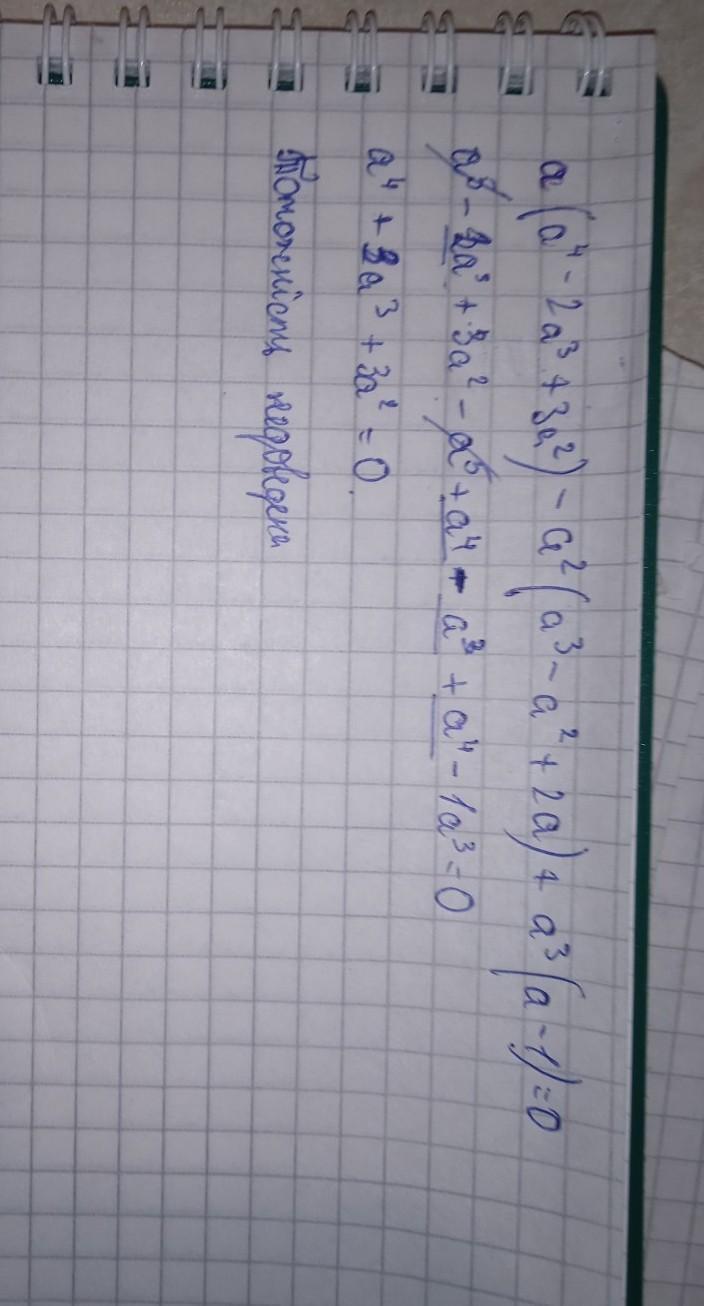 a(a⁴ - 2a³ + 3a²) - a²(a³ - a² + 2a) + a³(a - 1) = 0
a⁵ - 2a³ + 3a² - a⁵ + a⁴ - a³ + a⁴ - 1a³ = 0
a⁴ + 2a³ + 3a² = 0
Тотожність недоведена